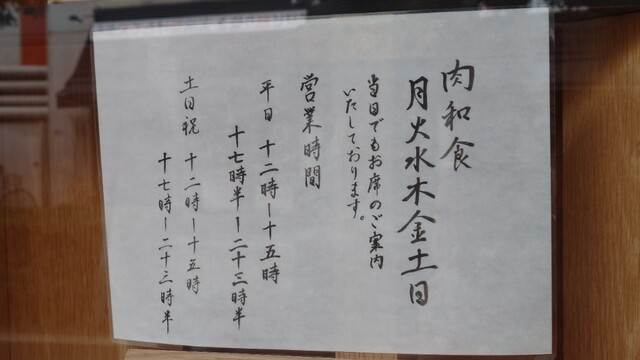 肉和食
月火水木金土日
当日でもお席のご案内
いたしております。
営業時間
平日 十二時ー十五時
十七時半ー二十三時半
土日祝 十二時ー十五時
十七時ー二十三時半